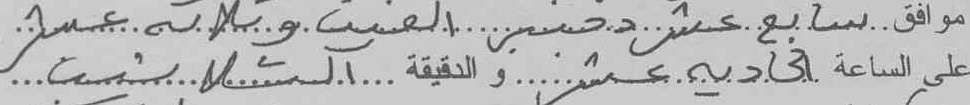 موافق سابع عشر دجنبر ألفين و ثلاثة عشر
على الساعة الحادية عشر و الدقيقة الثلاثين